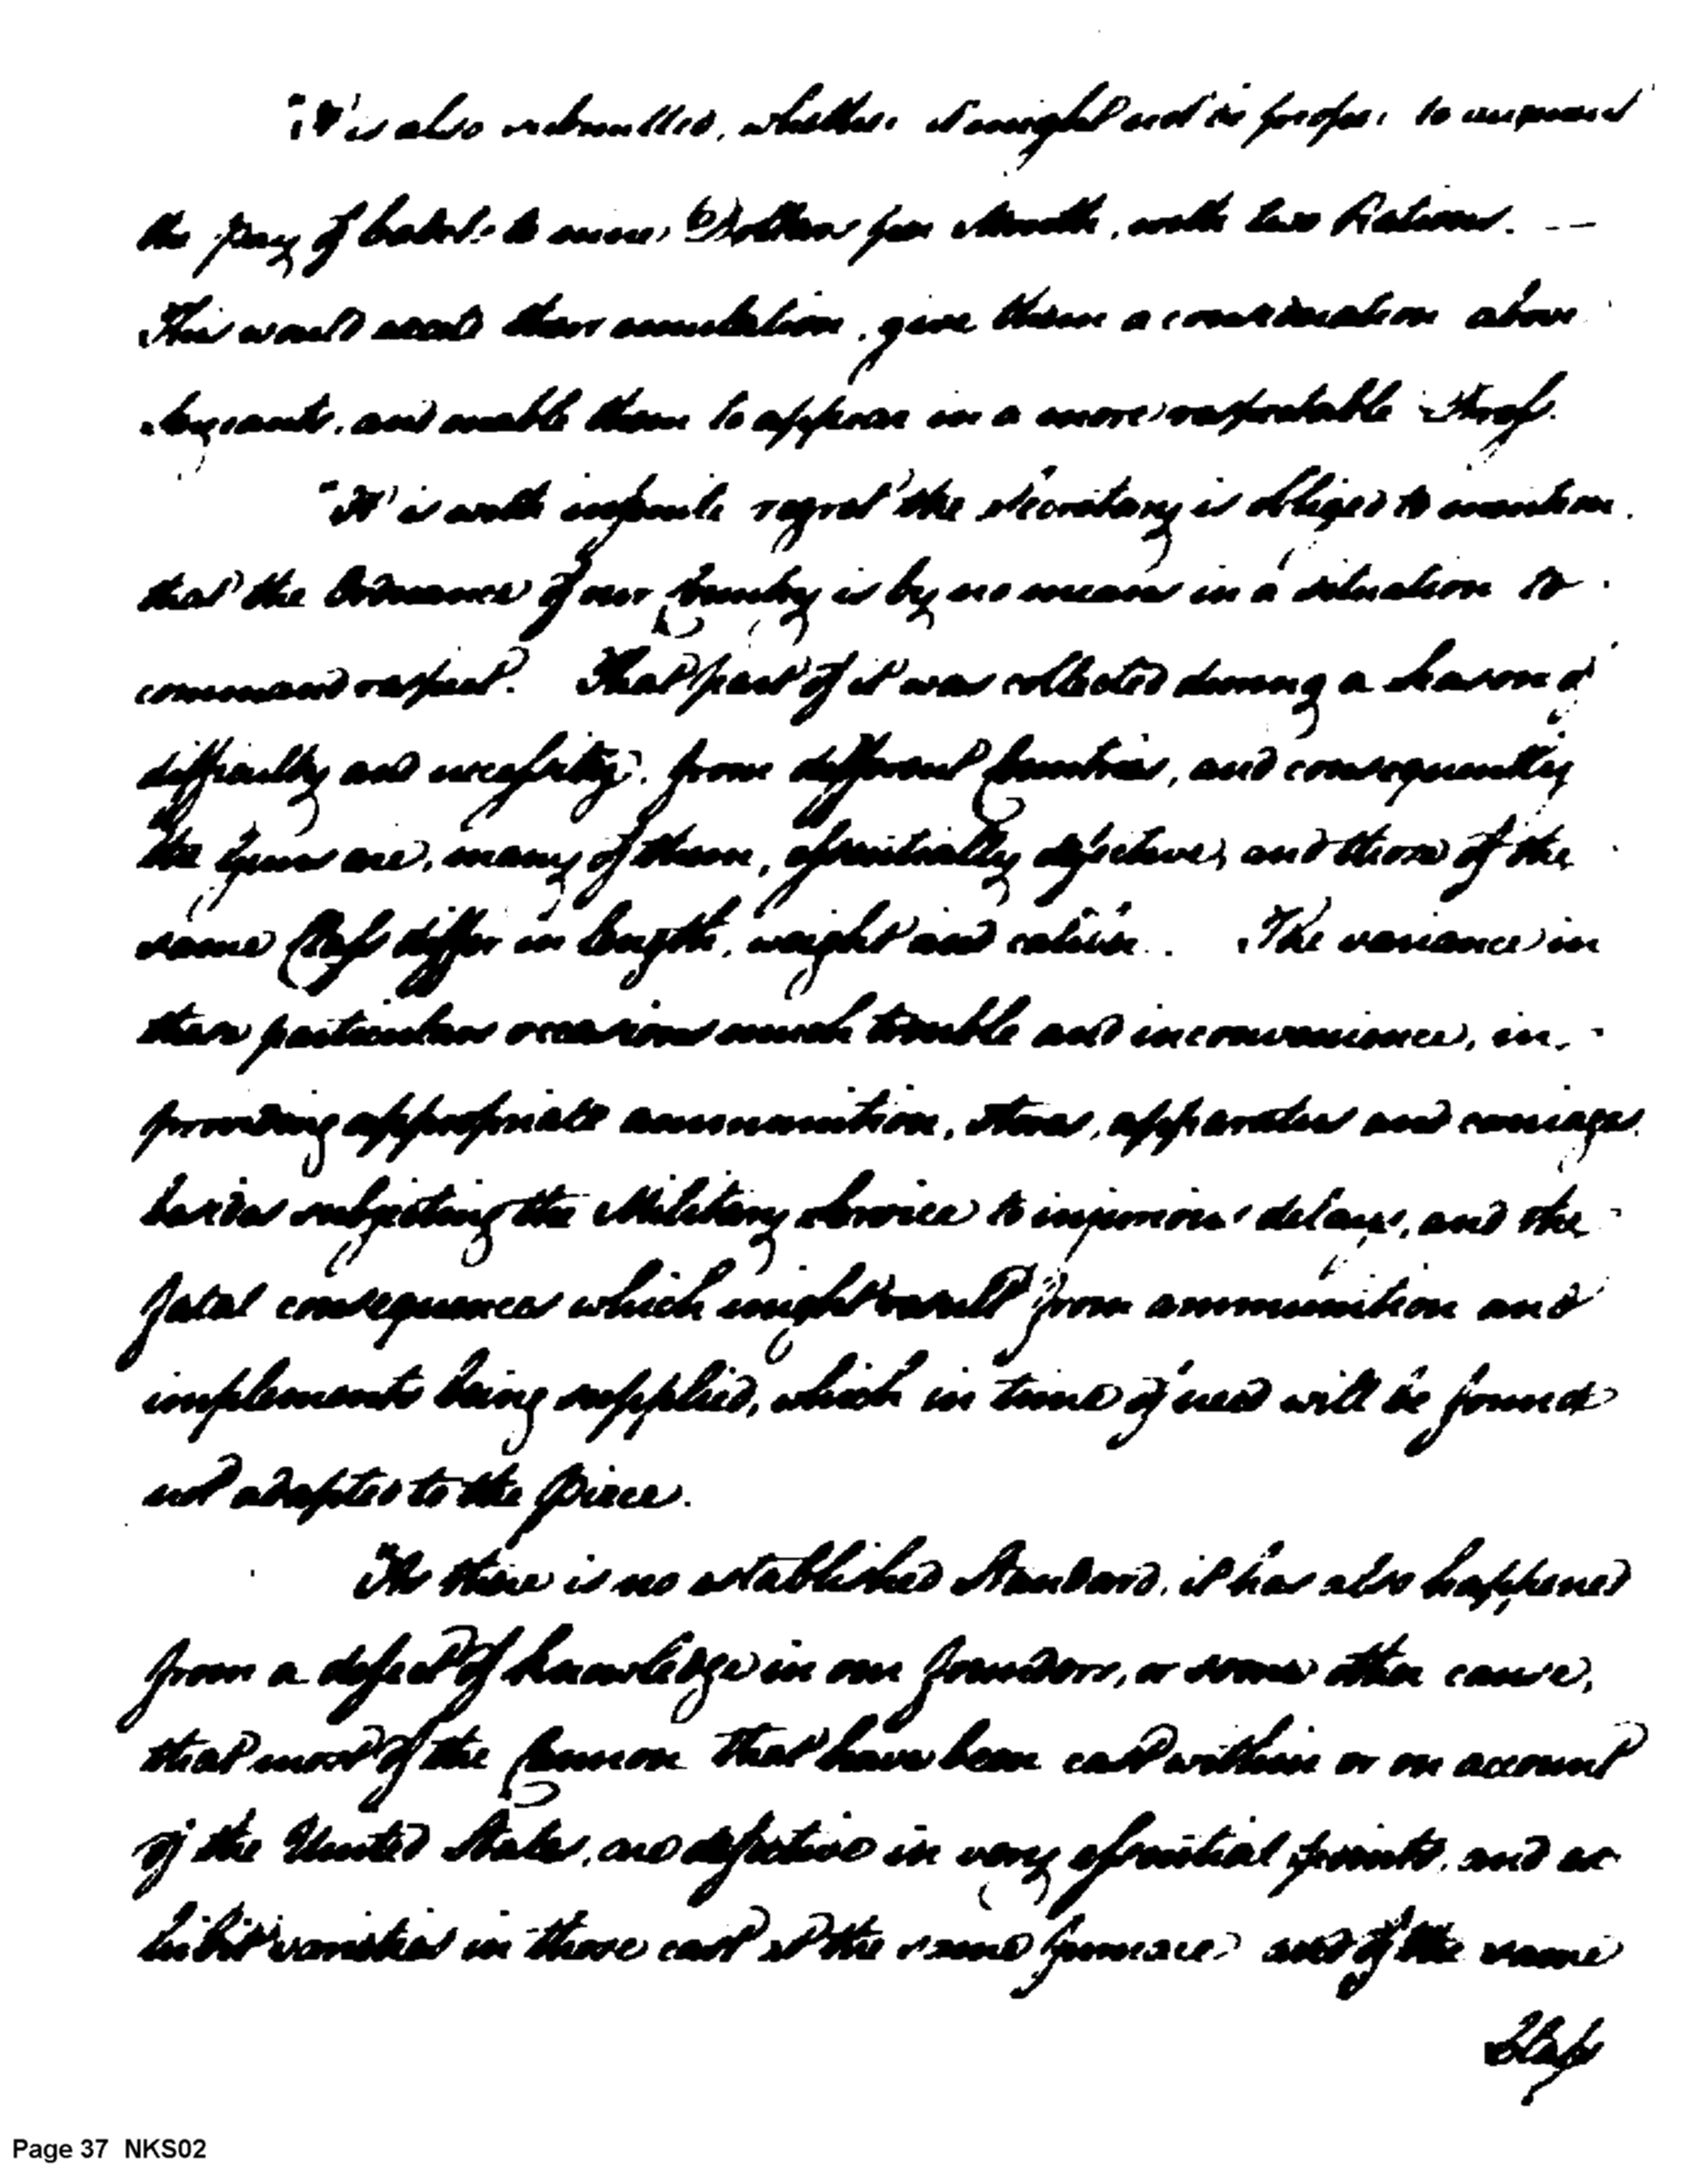 "It is also submitted, whether it might not be proper to augment
the pay of Cadets to nine Dollars per Month, with two Rations. --
This would excite their emulation, give them a consideration above
Sergeants, and enable them to appear in a more respectable
"It is with infinite regret the Secretary is obliged to mention
that the Ordnance of our Country is by no means in a situation to
command respect. That part of it was collected during a Season of
difficulty and necessity, from different Countries, and consequently
the Guns are, many of them, essentially defective, and those of the
same Class differ in length, weight and calibre. The variance in
these particulars occasions much trouble and inconvenience, in
providing appropriate ammunition, stores, apparatus and carriages
besides subjecting the Military Service to injurious delays, and the
fatal consequences which might result from ammunition and
implements being supplied, which in time of need will be found
not adapted to the Piece.
"As there is no established Standard, it has also happened
from a defect of knowledge in our founders, or some other cause,
that most of the Cannon that have been cast within or on account
of the United States, are defective in very essential points, and ex
hibit varieties in those cast at the same furnace and of the same
Class
Page 37 NKS02